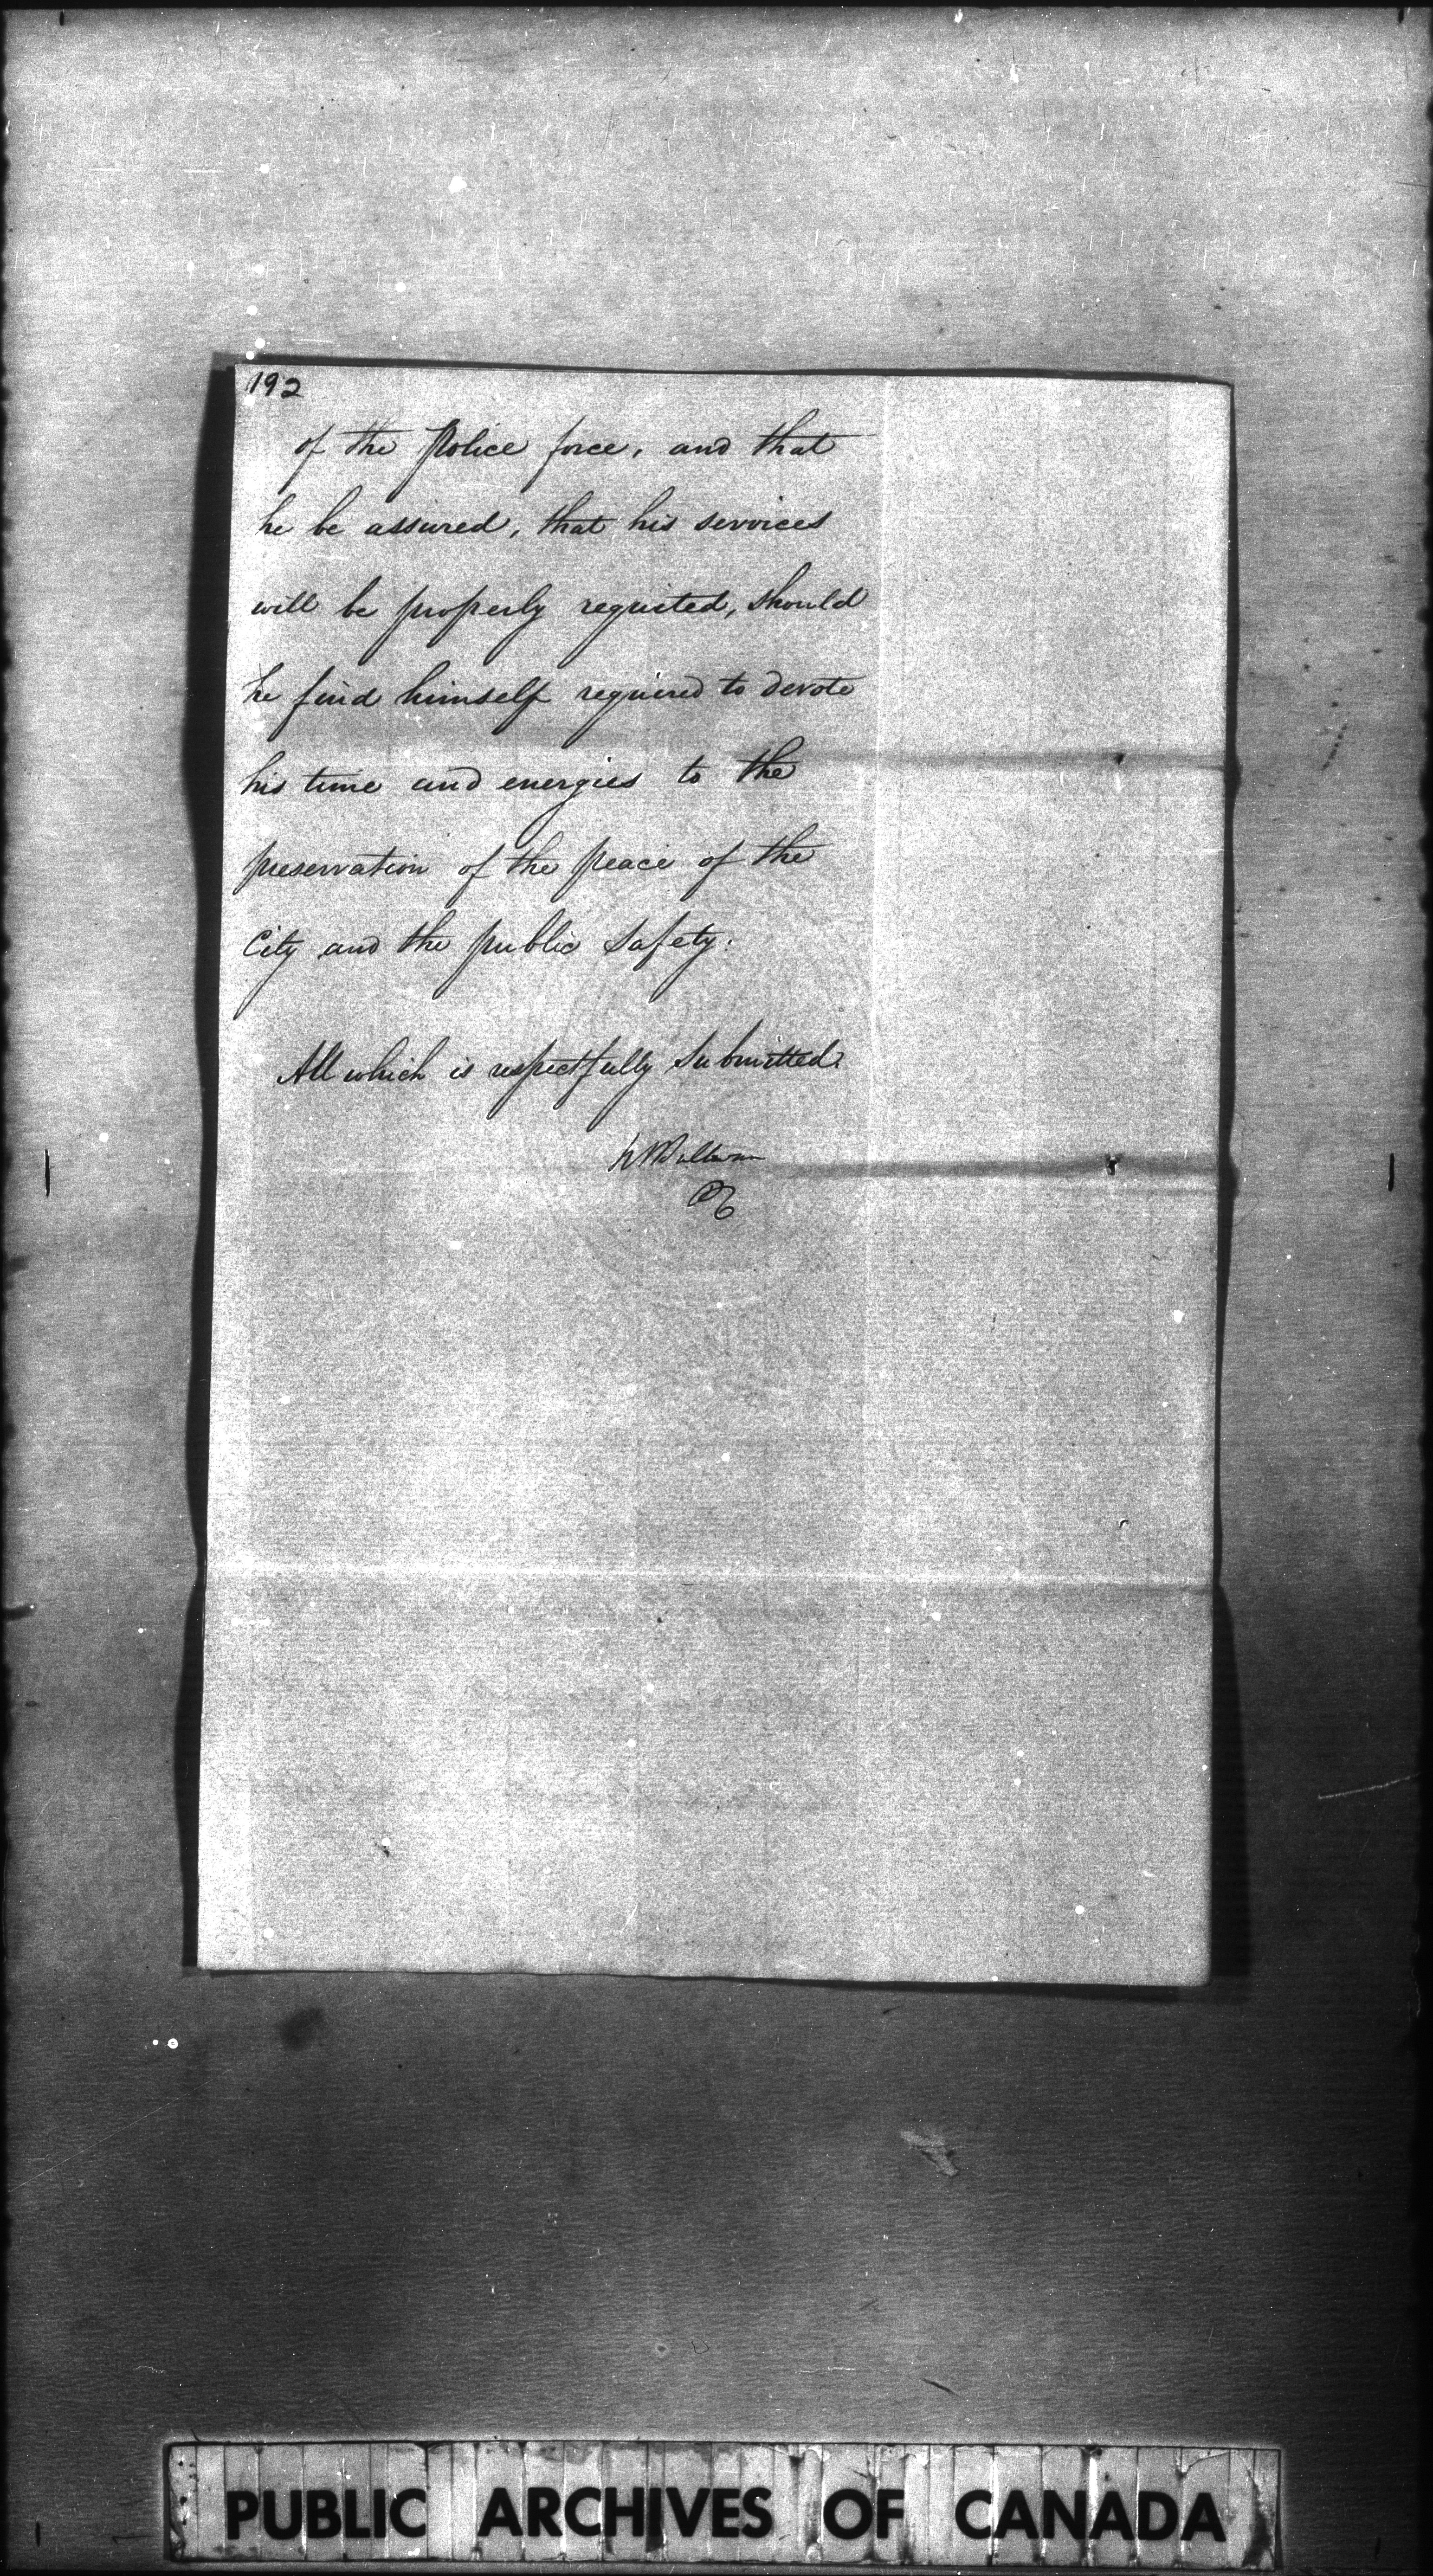 192
of the Police force, and that
he be assured, that his services
will be properly requited, should
he find himself required to devote
his time and energies to the
preservation of the peace of the
City and the public Safety.
All which is respectfully submitted.
PUBLIC ARCHIVES OF CANADA